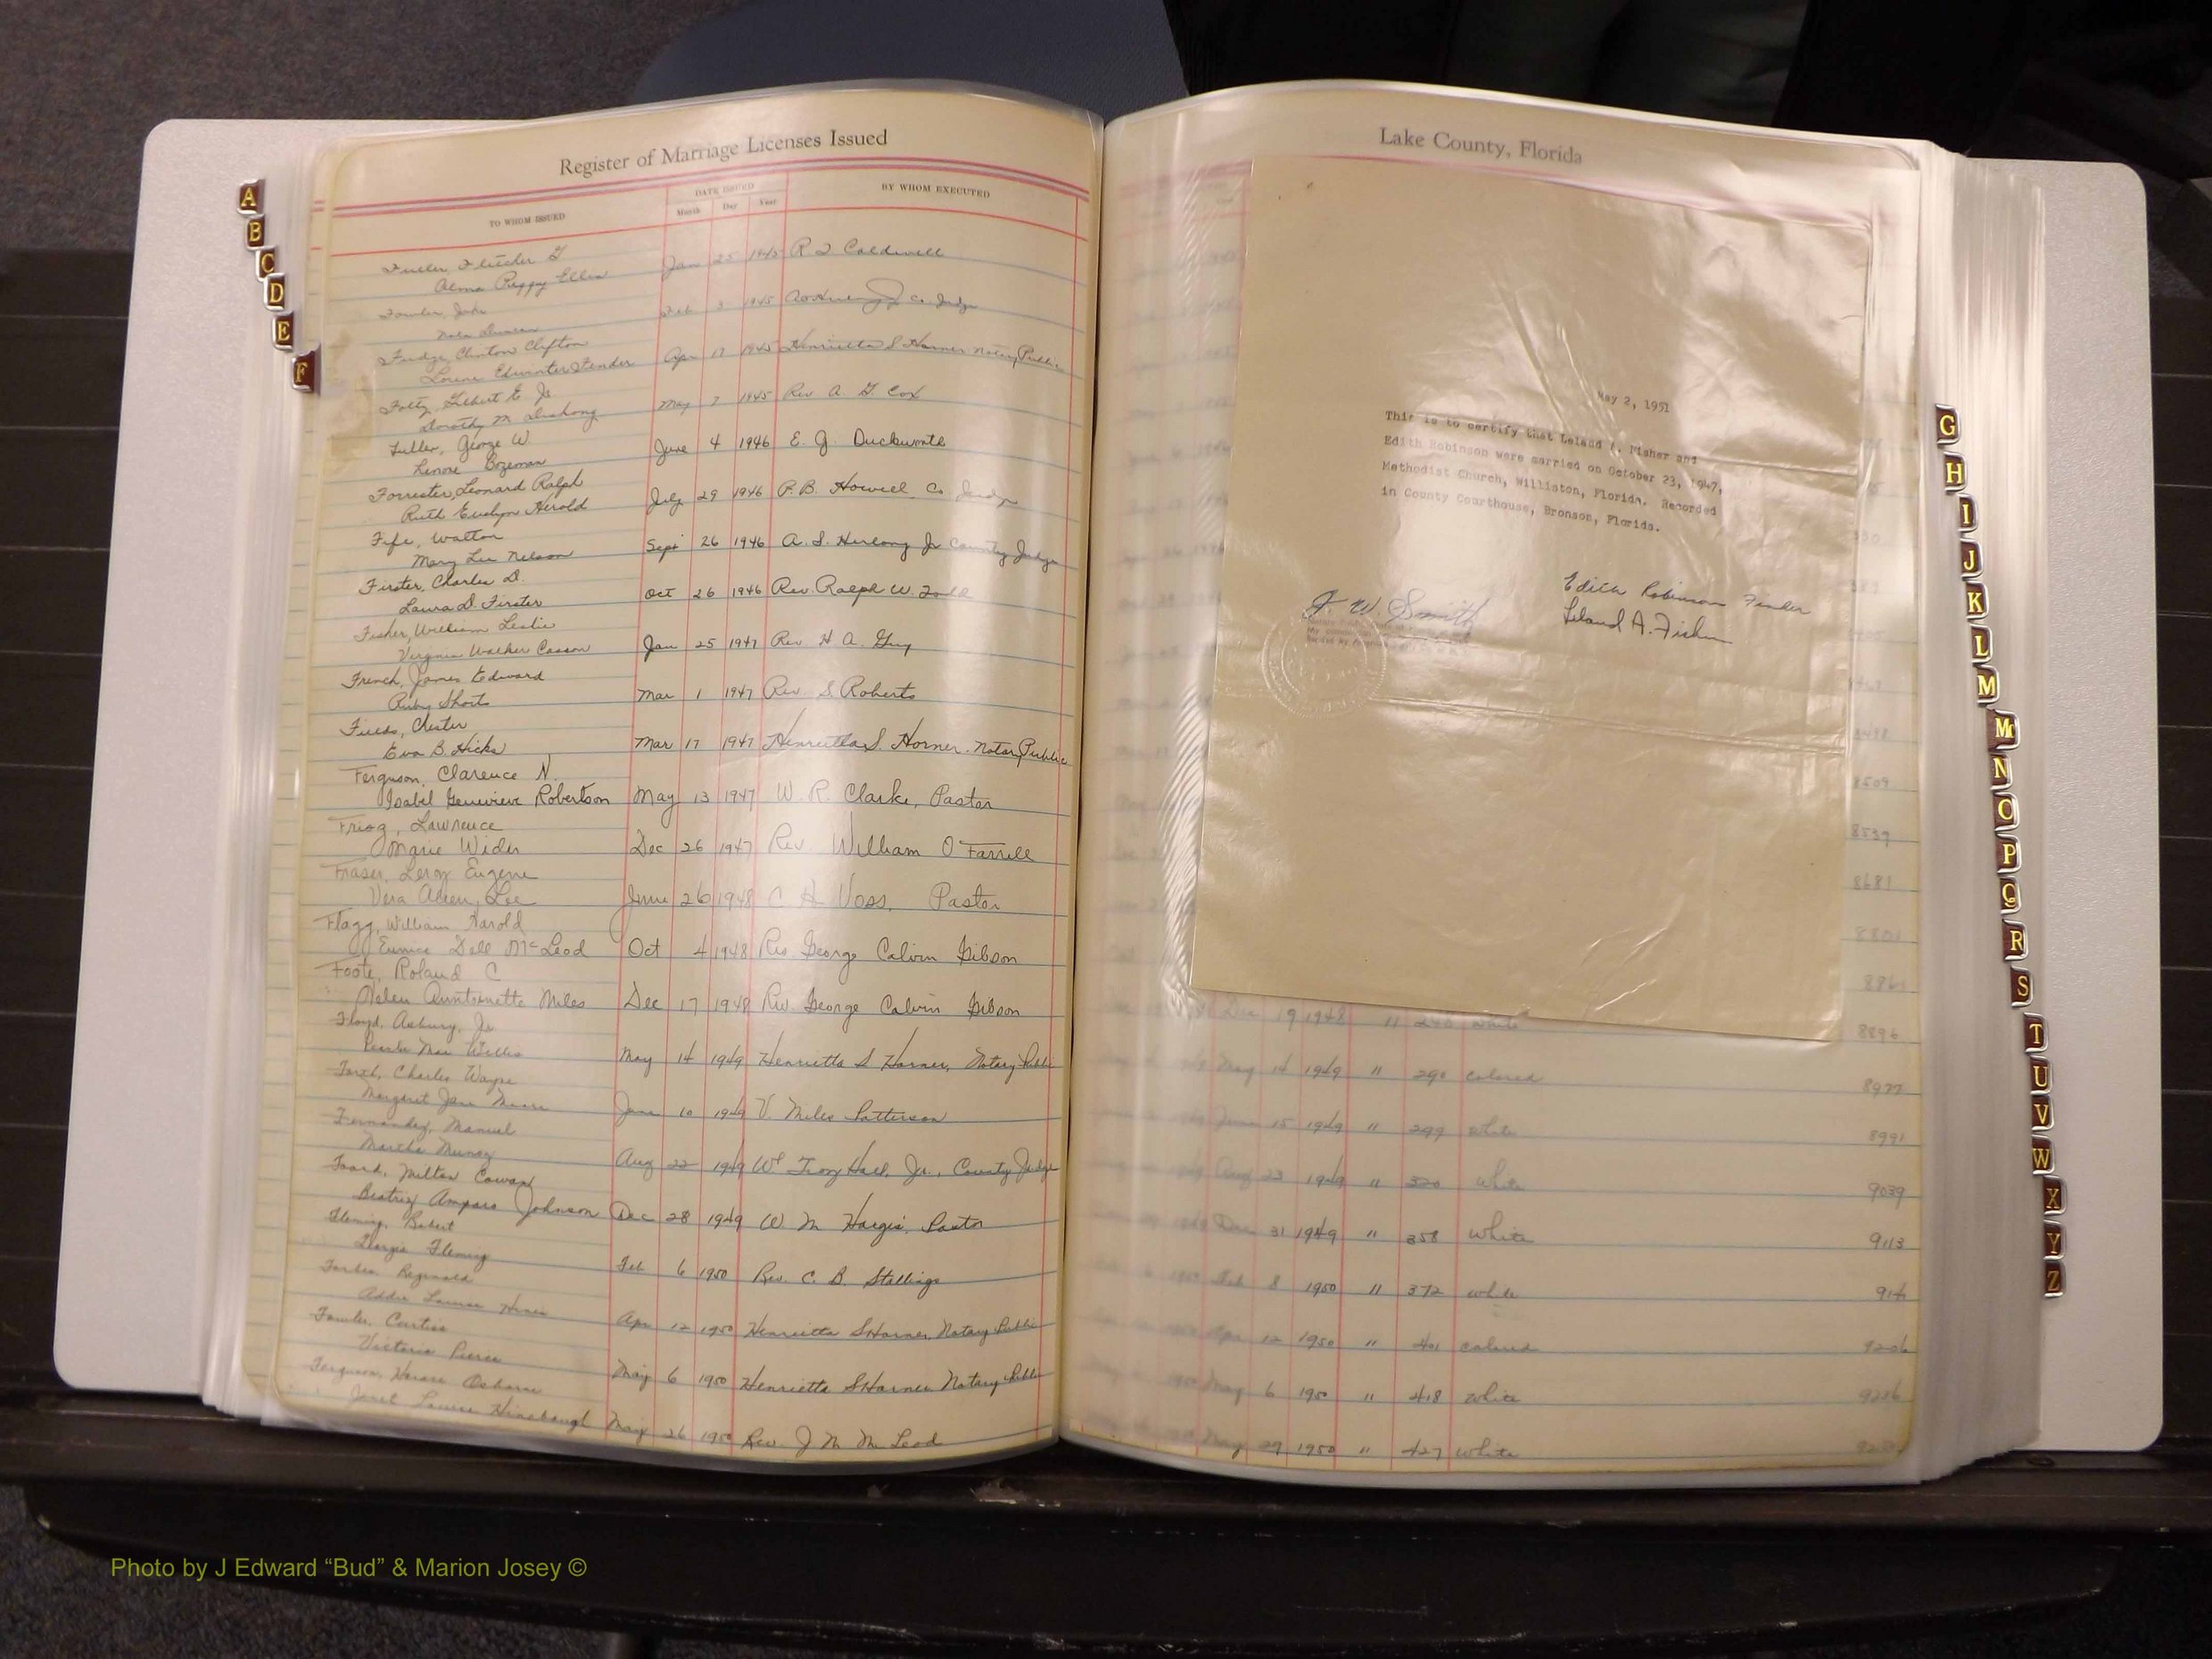 Register of Marriage Licenses Issued
TO WHOM ISSUED
DATE ISSUED
BY WHOM EXECUTED
Month Day Year
Fuller, Fletcher G
Alma Peggy Ellen Jan 25 1945 R J Caldwell
Fowler, John
Feb 3 1945 Co. Judge
Fudge, Clinton Clifton
Apr 17 1945 Henrietta S Horner Notary Public
Foltz, Gilbert E Jr
Dorothy M May 7 1945 Rev A. G. Cox
Fuller, George W
Lenore Bozeman June 4 1946 E. J. Duckworth
Forrester, Leonard Ralph
Ruth Evelyn Herold July 29 1946 P. B. Howell Co. Judge
Fife, Walton
Mary Lee Nelson Sept 26 1946 A. S. Herlong Jr County Judge
Firster, Charles D.
Laura D. Firster Oct 26 1946 Rev. Ralph W. Todd
Fisher, William Leslie
Virginia Walker Casson Jan 25 1947 Rev. H A. Guy
French, James Edward
Ruby Shorts Mar 1 1947 Rev. S. Roberts
Fields, Chester
Eva B. Hicks Mar 17 1947 Henrietta S. Horner. Notary Public
Ferguson, Clarence N.
Isabel Genevieve Robertson May 13 1947 W. R. Clarke, Pastor
Lawrence
Marie Wider Dec 26 1947 Rev. William O'Farrell
Fraser, Leroy Eugene
Vera Lee June 26 1948 C H Voss, Pastor
Flagg, William Harold
Eunice Dell McLeod Oct 4 1948 Rev George Calvin Gibson
Foote, Roland C
Helen Auntoinette Miles Dec 17 1948 Rev. George Calvin Gibson
Floyd, Asbury, Jr
Pearlie Mae Willis May 14 1949 Henrietta S Horner, Notary Public
Charles Wayne
Margaret Jane Moore June 10 1949 V. Miles Patterson
Fernandez, Manuel
Martha Munoz Aug 22 1949 Wm Troy Hall, Jr., County Judge
Foard, Milton Cowan
Beatriz Amparo Johnson Dec 28 1949 W M Hargis, Pastor
Fleming, Robert
Georgia Fleming Feb 6 1950 Rev. C. B. Stallings
Forbes Reginald
Addie Louise Apr 12 1950 Henrietta S Horner, Notary Public
Fowler, Curtiss
Victoria Pierce May 6 1950 Henrietta S Horner Notary Public
Ferguson, Horace Osborne
Janet Louise Hinebaugh May 26 1950 Rev. J M McLeod
A
B
C
D
E
F
Lake County, Florida
May 2, 1951
This is to certify that Leland A. Fisher and
Edith Robinson were married on October 23, 1947,
Methodist Church, Williston, Florida. Recorded
in County Courthouse, Bronson, Florida.
J. W. Smith
Edith Robinson Fisher
Leland A. Fisher
8509
8539
8681
8801
Dec 19 1948 " 240 white 8896
May 14 1949 " 290 colored 8977
June 15 1949 " 299 white 8991
Aug 23 1949 " 320 White 9039
Dec 31 1949 " 358 White 9113
Feb 8 1950 " 372 white
Apr 12 1950 " 401 colored 9206
May 6 1950 " 418 White 9236
May 29 1950 " 427 white
G
H
I
J
K
L
M
Mc
N
O
P
Q
R
S
T
U
V
W
X
Y
Z
Photo by J Edward “Bud” & Marion Josey ©